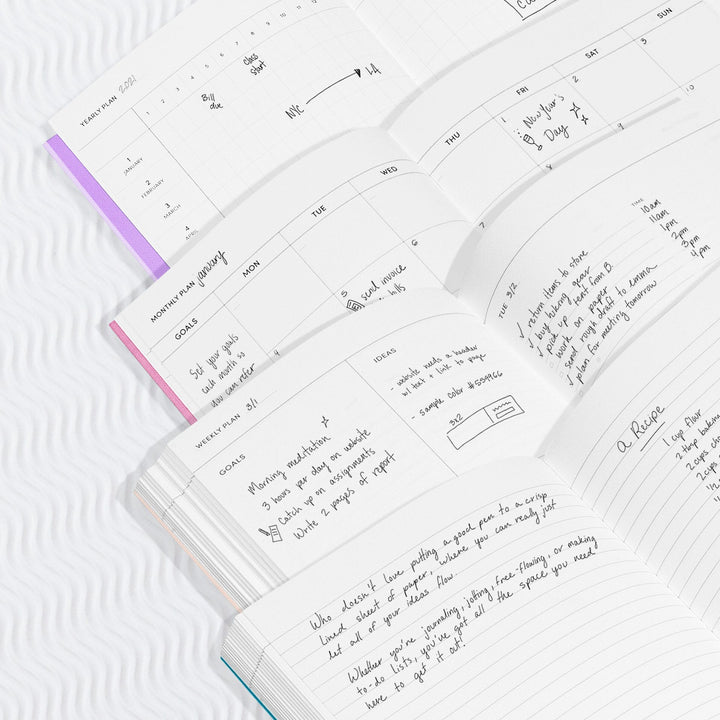 YEARLY PLAN 2021
1 2 3 4 5 6 7 8 9 10 11 12
class
start
Bill
due
NYC LA
1
JANUARY
2
FEBRUARY
3
MARCH
4
APRIL
MONTHLY PLAN january
GOALS
MON
TUE
WED
THU
FRI
SAT
SUN
Set your goals
each month so
you can refer
4
5
send invoice
bills
6
7
1
New Year's
Day
2
3
8
9
10
WEEKLY PLAN 3/1
GOALS
Morning meditation
3 hours per day on website
Catch up on assignments
Write 2 pages of report
IDEAS
- website needs a header
w/ text + link to page
- sample color #559966
3x2
TUE 3/2
TIME
return items to store 10am
buy hiking gear 11am
pick up tent from B. 1pm
work on paper 2pm
send rough draft to emma 3pm
plan for meeting tomorrow 4pm
Who doesn't love putting a good pen to a crisp
lined sheet of paper, where you can really just
let all of your ideas flow.
Whether you're journaling, jotting, free-flowing, or making
to-do lists, you've got all the space you need
here to get it out!
a Recipe
1 cup flour
2 tbsp baking
2 cups
2 cups